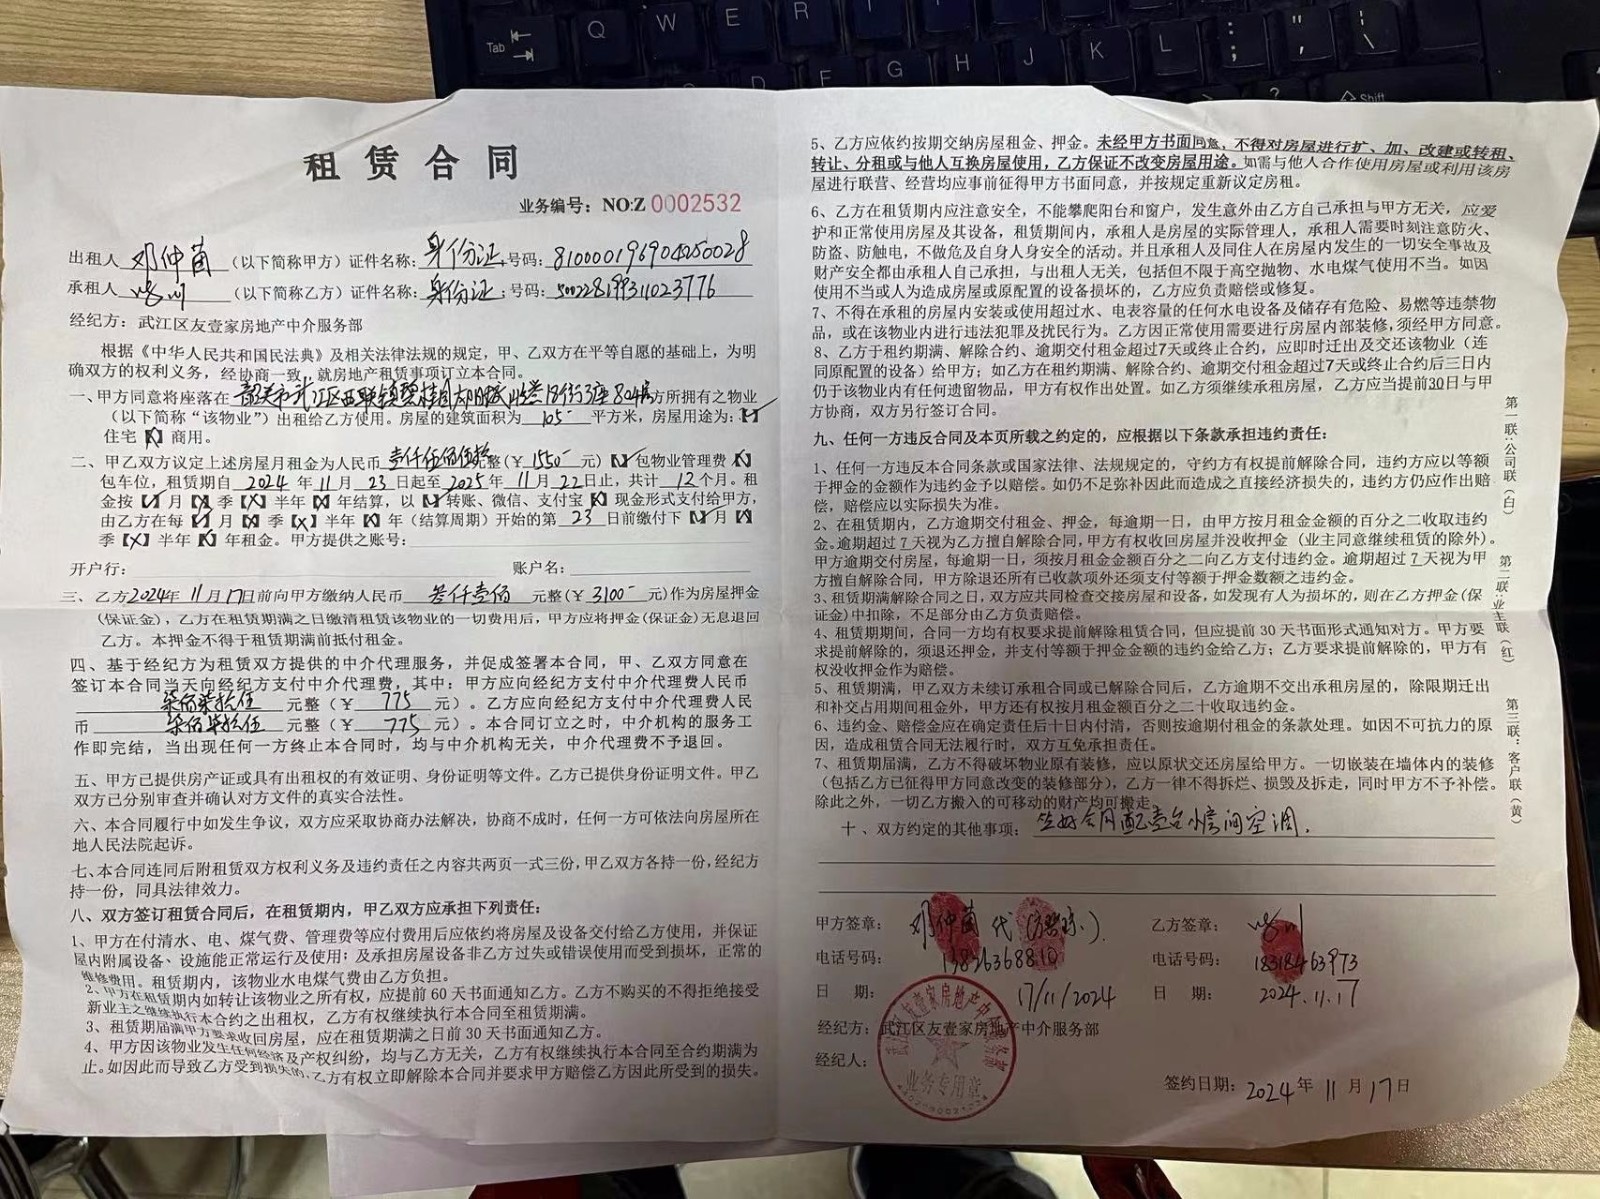 租赁合同
业务编号：NO:Z 0002532
出租人 邓仲茵 （以下简称甲方）证件名称：身份证 号码：810000196904250028
承租人 （以下简称乙方）证件名称：身份证；号码：500228199311023776
经纪方：武江区友壹家房地产中介服务部
根据《中华人民共和国民法典》及相关法律法规的规定，甲、乙双方在平等自愿的基础上，为明
确双方的权利义务，经协商一致，就房地产租赁事项订立本合同。
一、甲方同意将座落在 韶关市武江区西联镇碧桂园太阳城 街3座804房 方所拥有之物业
（以下简称“该物业”）出租给乙方使用。房屋的建筑面积为 105 平方米，房屋用途为：【✓】
住宅【X】商用。
二、甲乙双方议定上述房屋月租金为人民币 壹仟伍佰伍拾 元整（￥ 1550 元）【✓】包物业管理费【X】
包车位，租赁期自 2024 年 11 月 23 日起至 2025 年 11 月 22 日止，共计 12 个月。租
金按【✓】月【X】季【X】半年【X】年结算，以【✓】转账、微信、支付宝【X】现金形式支付给甲方，
由乙方在每【✓】月【X】季【X】半年【X】年（结算周期）开始的第 23 日前缴付下【✓】月【X】
季【X】半年【X】年租金。甲方提供之账号：
开户行： 账户名：
三、乙方 2024年 11 月 17 日前向甲方缴纳人民币 叁仟壹佰 元整（￥ 3100 元）作为房屋押金
（保证金），乙方在租赁期满之日缴清租赁该物业的一切费用后，甲方应将押金（保证金）无息退回
乙方。本押金不得于租赁期满前抵付租金。
四、基于经纪方为租赁双方提供的中介代理服务，并促成签署本合同，甲、乙双方同意在
签订本合同当天向经纪方支付中介代理费，其中：甲方应向经纪方支付中介代理费人民币
柒佰柒拾伍 元整（￥ 775 元）。乙方应向经纪方支付中介代理费人民
币 柒佰柒拾伍 元整（￥ 775 元）。本合同订立之时，中介机构的服务工
作即完结，当出现任何一方终止本合同时，均与中介机构无关，中介代理费不予退回。
五、甲方已提供房产证或具有出租权的有效证明、身份证明等文件。乙方已提供身份证明文件。甲乙
双方已分别审查并确认对方文件的真实合法性。
六、本合同履行中如发生争议，双方应采取协商办法解决，协商不成时，任何一方可依法向房屋所在
地人民法院起诉。
七、本合同连同后附租赁双方权利义务及违约责任之内容共两页一式三份，甲乙双方各持一份，经纪方
持一份，同具法律效力。
八、双方签订租赁合同后，在租赁期内，甲乙双方应承担下列责任：
1、甲方在付清水、电、煤气费、管理费等应付费用后应依约将房屋及设备交付给乙方使用，并保证
屋内附属设备、设施能正常运行及使用；及承担房屋设备非乙方过失或错误使用而受到损坏，正常的
维修费用。租赁期内，该物业水电煤气费由乙方负担。
2、甲方在租赁期内如转让该物业之所有权，应提前60天书面通知乙方。乙方不购买的不得拒绝接受
新业主之继续执行本合约之出租权，乙方有权继续执行本合同至租赁期满。
3、租赁期届满甲方要求收回房屋，应在租赁期满之日前30天书面通知乙方。
4、甲方因该物业发生任何经济及产权纠纷，均与乙方无关，乙方有权继续执行本合同至合约期满为
止。如因此而导致乙方受到损失的，乙方有权立即解除本合同并要求甲方赔偿乙方因此所受到的损失。
5、乙方应依约按期交纳房屋租金、押金。未经甲方书面同意，不得对房屋进行扩、加、改建或转租、
转让、分租或与他人互换房屋使用，乙方保证不改变房屋用途。如需与他人合作使用房屋或利用该房
屋进行联营、经营均应事前征得甲方书面同意，并按规定重新议定房租。
6、乙方在租赁期内应注意安全，不能攀爬阳台和窗户，发生意外由乙方自己承担与甲方无关，应爱
护和正常使用房屋及其设备，租赁期间内，承租人是房屋的实际管理人，承租人需要时刻注意防火、
防盗、防触电，不做危及自身人身安全的活动。并且承租人及同住人在房屋内发生的一切安全事故及
财产安全都由承租人自己承担，与出租人无关，包括但不限于高空抛物、水电煤气使用不当。如因
使用不当或人为造成房屋或原配置的设备损坏的，乙方应负责赔偿或修复。
7、不得在承租的房屋内安装或使用超过水、电表容量的任何水电设备及储存有危险、易燃等违禁物
品，或在该物业内进行违法犯罪及扰民行为。乙方因正常使用需要进行房屋内部装修，须经甲方同意。
8、乙方于租约期满、解除合约、逾期交付租金超过7天或终止合约，应即时迁出及交还该物业（连
同原配置的设备）给甲方；如乙方在租约期满、解除合约、逾期交付租金超过7天或终止合约后三日内
仍于该物业内有任何遗留物品，甲方有权作出处置。如乙方须继续承租房屋，乙方应当提前30日与甲
方协商，双方另行签订合同。
九、任何一方违反合同及本页所载之约定的，应根据以下条款承担违约责任：
1、任何一方违反本合同条款或国家法律、法规规定的，守约方有权提前解除合同，违约方应以等额
于押金的金额作为违约金予以赔偿。如仍不足弥补因此而造成之直接经济损失的，违约方仍应作出赔
偿，赔偿应以实际损失为准。
2、在租赁期内，乙方逾期交付租金、押金，每逾期一日，由甲方按月租金金额的百分之二收取违约
金。逾期超过7天视为乙方擅自解除合同，甲方有权收回房屋并没收押金（业主同意继续租赁的除外）。
甲方逾期交付房屋，每逾期一日，须按月租金金额百分之二向乙方支付违约金。逾期超过7天视为甲
方擅自解除合同，甲方除退还所有已收款项外还须支付等额于押金数额之违约金。
3、租赁期满解除合同之日，双方应共同检查交接房屋和设备，如发现有人为损坏的，则在乙方押金（保
证金）中扣除，不足部分由乙方负责赔偿。
4、租赁期期间，合同一方均有权要求提前解除租赁合同，但应提前30天书面形式通知对方。甲方要
求提前解除的，须退还押金，并支付等额于押金金额的违约金给乙方；乙方要求提前解除的，甲方有
权没收押金作为赔偿。
5、租赁期满，甲乙双方未续订承租合同或已解除合同后，乙方逾期不交出承租房屋的，除限期迁出
和补交占用期间租金外，甲方还有权按月租金额百分之二十收取违约金。
6、违约金、赔偿金应在确定责任后十日内付清，否则按逾期付租金的条款处理。如因不可抗力的原
因，造成租赁合同无法履行时，双方互免承担责任。
7、租赁期届满，乙方不得破坏物业原有装修，应以原状交还房屋给甲方。一切嵌装在墙体内的装修
（包括乙方已征得甲方同意改变的装修部分），乙方一律不得拆烂、损毁及拆走，同时甲方不予补偿。
除此之外，一切乙方搬入的可移动的财产均可搬走。
十、双方约定的其他事项： 签好合同配壹台 房间空调.
甲方签章： 邓仲茵 代 乙方签章：
电话号码： 13826368810 电话号码： 18318463973
日 期： 17/11/2024 日 期： 2024.11.17
经纪方：武江区友壹家房地产中介服务部
经纪人：
签约日期：2024年 11 月 17 日
武江区友壹家房地产中介服务部
业务专用章
第一联：公司联（白）
第二联：业主联（红）
第三联：客户联（黄）
Tab
Q W E R
; : " ' | \
D F G H J K L
?
Shift